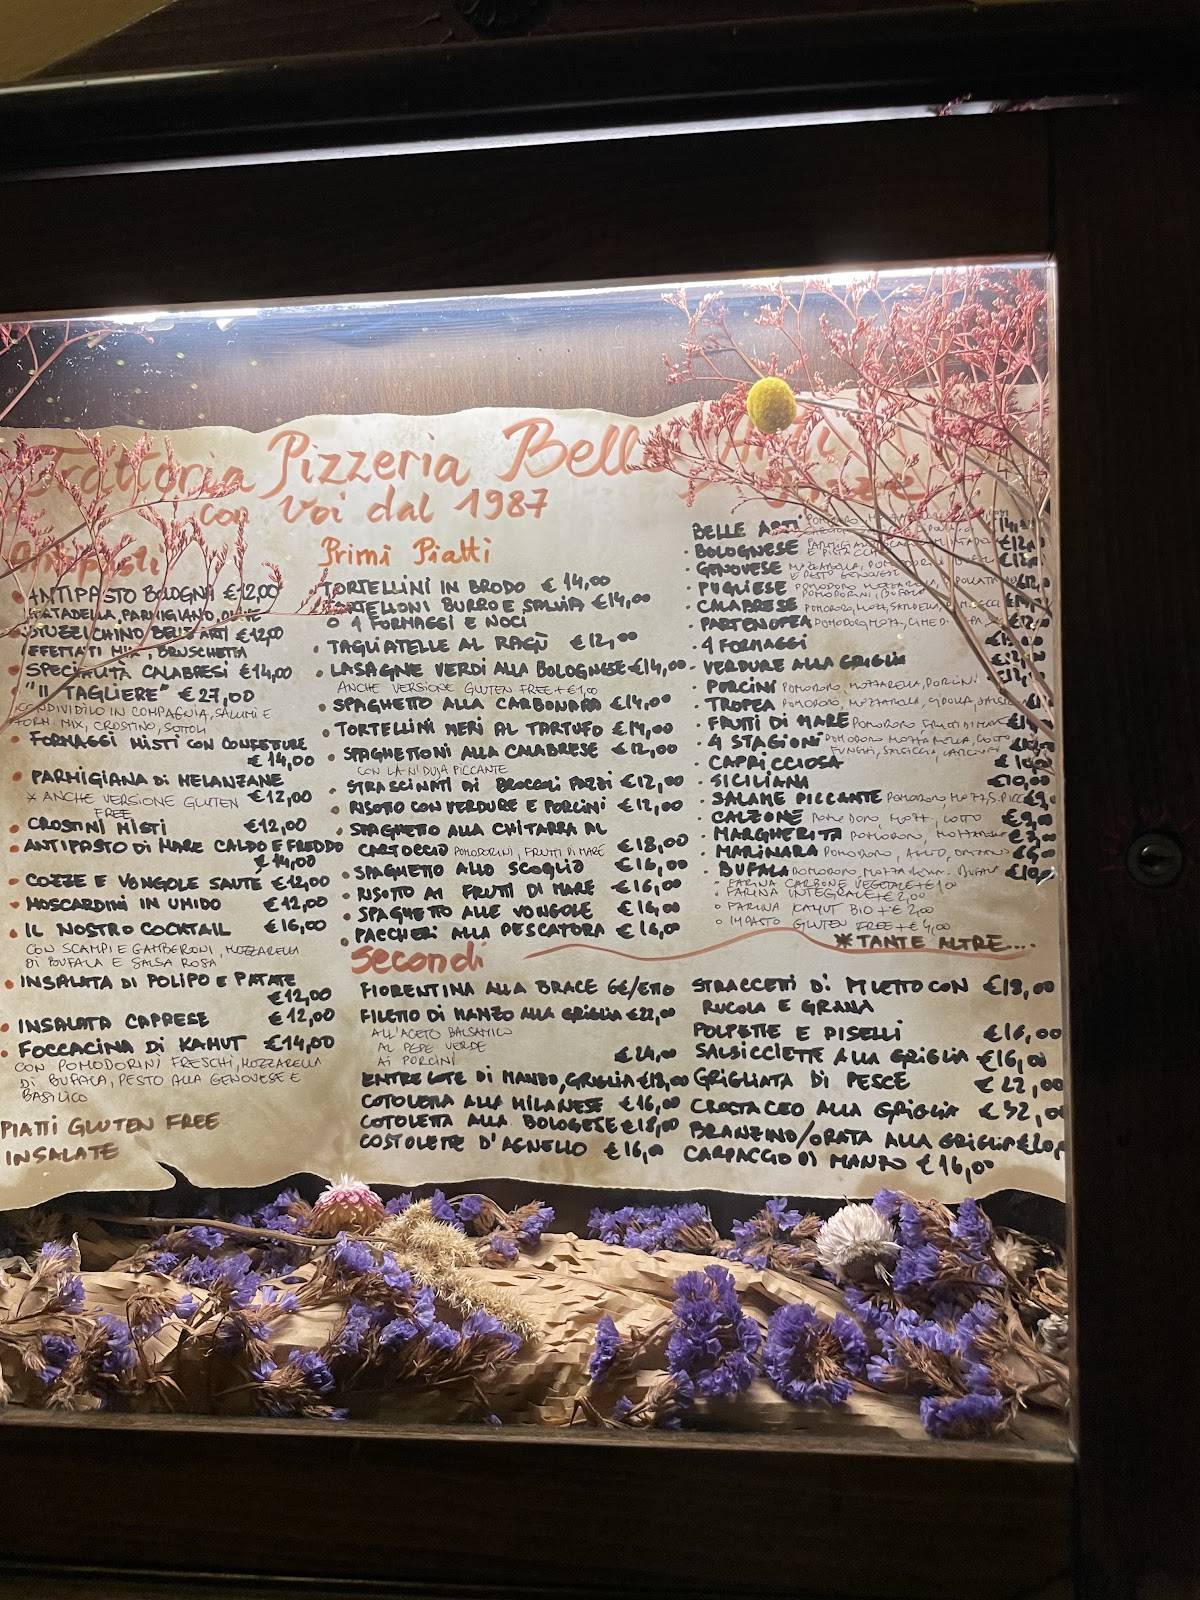 Trattoria Pizzeria Belle Arti
con voi dal 1987
Antipasti
ANTIPASTO BOLOGNA €12,00
MORTADELLA, PARMIGIANO, OLIVE
STUZZICHINO BELLE ARTI €12,00
AFFETTATI MIX, BRUSCHETTA
SPECIALITÀ CALABRESI €14,00
"IL TAGLIERE" €27,00
CONDIVIDILO IN COMPAGNIA, SALUMI E
FORM. MIX, CROSTINO, SOTTOLI
FORMAGGI MISTI CON CONFETTURE
€14,00
PARMIGIANA DI MELANZANE
* ANCHE VERSIONE GLUTEN €12,00
FREE
CROSTINI MISTI €12,00
ANTIPASTO DI MARE CALDO E FREDDO
€14,00
COZZE E VONGOLE SAUTE €12,00
MOSCARDINI IN UMIDO €12,00
IL NOSTRO COCKTAIL €16,00
CON SCAMPI E GAMBERONI, MOZZARELLA
DI BUFALA E SALSA ROSA
INSALATA DI POLIPO E PATATE
€12,00
INSALATA CAPRESE €12,00
FOCCACINA DI KAMUT €14,00
CON POMODORINI FRESCHI, MOZZARELLA
DI BUFALA, PESTO ALLA GENOVESE E
BASILICO
PIATTI GLUTEN FREE
INSALATE
Primi Piatti
TORTELLINI IN BRODO €14,00
TORTELLONI BURRO E SALVIA €14,00
O 4 FORMAGGI E NOCI
TAGLIATELLE AL RAGÙ €12,00
LASAGNE VERDI ALLA BOLOGNESE €14,00
ANCHE VERSIONE GLUTEN FREE + €1,00
SPAGHETTO ALLA CARBONARA €14,00
TORTELLINI NERI AL TARTUFO €14,00
SPAGHETTONI ALLA CALABRESE €12,00
CON LA NIDUJA PICCANTE
STRASCINATI DI BROCCOLI PAZZI €12,00
RISOTTO CON VERDURE E PORCINI €12,00
SPAGHETTO ALLA CHITARRA AL
CARTOCCIO POMODORINI, FRUTTI DI MARE €18,00
SPAGHETTO ALLO SCOGLIO €16,00
RISOTTO AI FRUTTI DI MARE €16,00
SPAGHETTO ALLE VONGOLE €16,00
PACCHERI ALLA PESCATORA €16,00
BELLE ARTI
BOLOGNESE
GENOVESE
E PESTO GENOVESE
PUGLIESE
CALABRESE
PARTENOPEA
4 FORMAGGI
VERDURE ALLA GRIGLIA
PORCINI POMODORO, MOZZARELLA, PORCINI
TROPEA POMODORO, MOZZARELLA, CIPOLLA
FRUTTI DI MARE POMODORO FRUTTI DI MARE
4 STAGIONI POMODORO MOZZARELLA, COTTO
FUNGHI, SALSICCIA, CARCIOFINI
CAPRICCIOSA
SICILIANA €10,00
SALAME PICCANTE POMODORO MOZZ, S. PICC €9
CALZONE POMODORO MOZZ, COTTO
MARGHERITA POMODORO, MOZZARELLA
MARINARA POMODORO, AGLIO, ORIGANO
BUFALA POMODORO, MOZZARELLA BUFALA
FARINA CARBONE VEGETALE +€1,00
FARINA INTEGRALE +€2,00
FARINA KAMUT BIO +€2,00
IMPASTO GLUTEN FREE +€4,00
*TANTE ALTRE....
Secondi
FIORENTINA ALLA BRACE 6€/ETTO
FILETTO DI MANZO ALLA GRIGLIA €22,00
ALL'ACETO BALSAMICO
AL PEPE VERDE
AI PORCINI €24,00
ENTRECOTE DI MANZO, GRIGLIA €18,00
COTOLETTA ALLA MILANESE €16,00
COTOLETTA ALLA BOLOGESE €18,00
COSTOLETTE D'AGNELLO €16,00
STRACCETTI DI FILETTO CON €18,00
RUCOLA E GRANA
POLPETTE E PISELLI €16,00
SALSICCIETTE ALLA GRIGLIA €16,00
GRIGLIATA DI PESCE €22,00
CROSTACEO ALLA GRIGLIA €32,00
BRANZINO/ORATA ALLA GRIGLIA €20,00
CARPACCIO DI MANZO €16,00